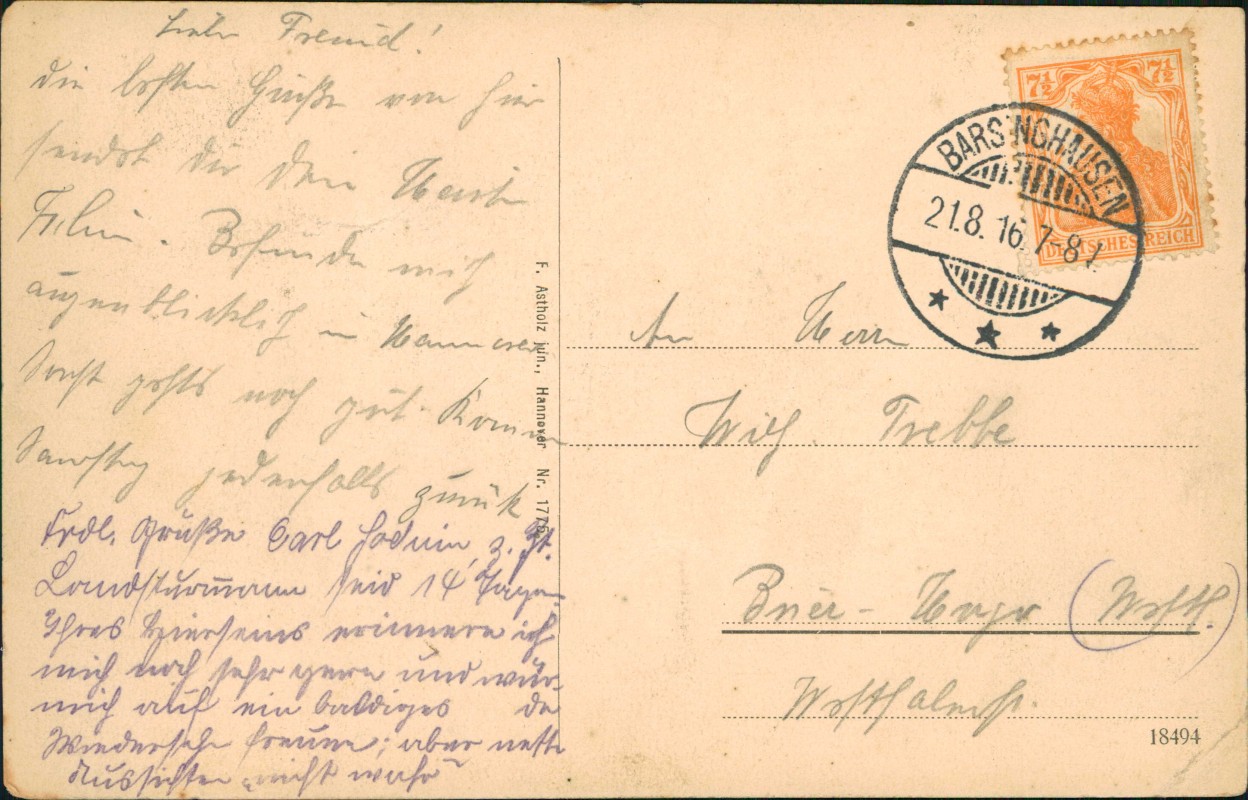 Lieber Freund!
die besten Grüße von hier
sendet dir dein
Befinde mich
augenblicklich in Hannover
Sonst gehts noch gut. Komme
Samstag jedenfalls zurück
Frdl. Grüße Carl z. Zt.
Landsturmann seid 14 Tagen
Ihres Hierseins erinnere ich
mich noch sehr gern und wür-
mich auf ein baldiges de
Wiedersehn freuen; aber nette
Aussichten nicht wahr
F. Astholz jun., Hannover Nr. 1775
7½ 7½
DEUTSCHES REICH
BARSINGHAUSEN
21.8.16. 7-8
An Herrn
Wilh. Trebbe
Buer - (Westf.)
Westfalen
18494